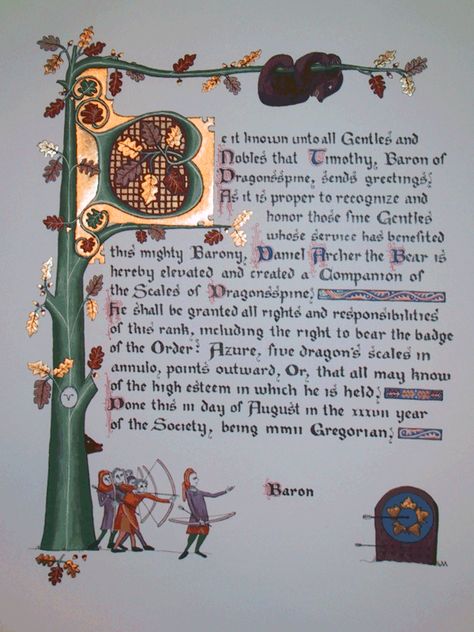 Be it known unto all Gentles and
Nobles that Timothy, Baron of
Dragonsspine, sends greetings.
As it is proper to recognize and
honor those fine Gentles
whose service has benefited
this mighty Barony, Daniel Archer the Bear is
hereby elevated and created a Companion of
the Scales of Dragonsspine.
He shall be granted all rights and responsibilities
of this rank, including the right to bear the badge
of the Order: Azure, five dragon's scales in
annulo, points outward, Or, that all may know
of the high esteem in which he is held.
Done this iii day of August in the xxxvii year
of the Society, being mmii Gregorian.
Baron